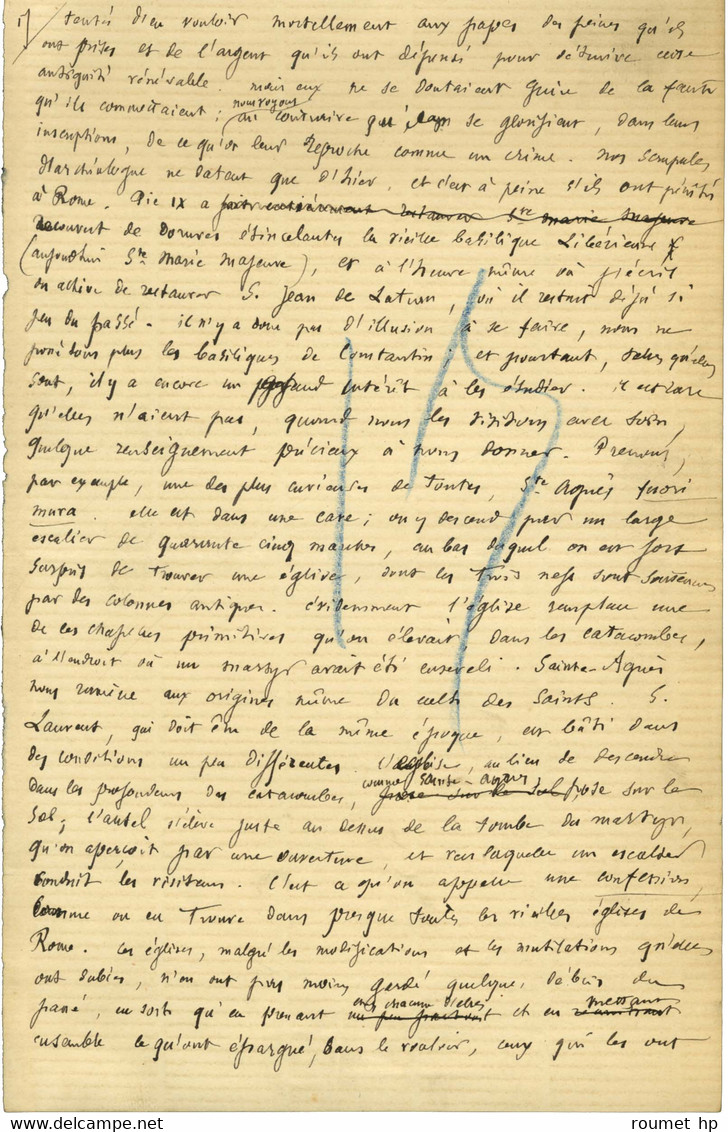 tentés d'en vouloir mortellement aux papes des peines qu'ils
ont prises et de l'argent qu'ils ont dépensé pour détruire cette
antiquité vénérable. mais eux ne se doutaient guère de la faute
qu'ils commettaient; nous voyons
au contraire qu'ils se glorifient, dans leurs
inscriptions, de ce qu'on leur reproche comme un crime. Nos scrupules
d'archéologue ne datent que d'hier, et c'est à peine s'ils ont pénétré
à Rome. Pie IX a fait entièrement restaurer Ste marie majeure
recouvert de dorures étincelantes la vieille basilique Libérienne
(aujourd'hui Ste Marie Majeure), et à l'heure même où j'écris
on achève de restaurer S. Jean de Latran, où il restait déjà si
peu du passé. il n'y a donc pas d'illusion à se faire, nous ne
possédons plus les basiliques de Constantin; et pourtant, telles qu'elles
sont, il y a encore un grand intérêt à les étudier. il est rare
qu'elles n'aient pas, quand nous les visitons avec soin,
quelque renseignement précieux à nous donner. Prenons,
par exemple, une des plus curieuses de toutes, Ste Agnès fuori
mura. elle est dans une cave; on y descend par un large
escalier de quarante cinq marches, au bas duquel on est fort
surpris de trouver une église, dont les trois nefs sont soutenues
par des colonnes antiques. évidemment l'église remplace une
de ces chapelles primitives qu'on élevait, dans les catacombes,
à l'endroit où un martyr avait été enseveli. Sainte-Agnès
nous ramène aux origines même du culte des Saints. S.
Laurent, qui doit être de la même époque, est bâti dans
des conditions un peu différentes. L'église, au lieu de descendre
comme Sainte-Agnès
dans les profondeurs des catacombes, pose sur le sol pose sur le
sol; l'autel s'élève juste au dessus de la tombe du martyr,
qu'on aperçoit par une ouverture, et vers laquelle un escalier
conduit les visiteurs. C'est ce qu'on appelle une confession,
comme on en trouve dans presque toutes les vieilles églises de
Rome. Ces églises, malgré les modifications et les mutilations qu'elles
ont subies, n'en ont pas moins gardé quelque débris du
chacune d'elles mettant
passé, en sorte qu'en prenant un peu partout et en réunissant
ensemble ce qu'ont épargné, sans le vouloir, ceux qui les ont
roumet hp